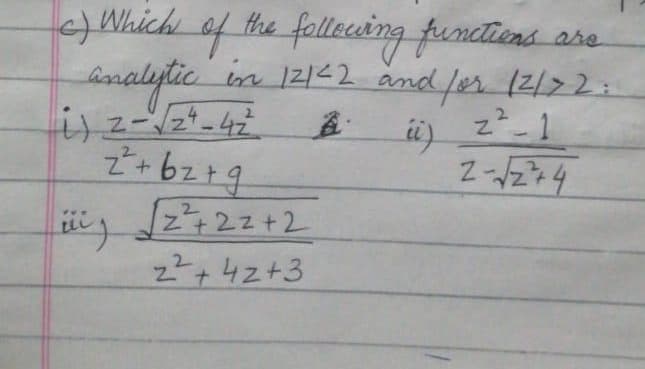 c) Which of the following functions are
analytic in |z|<2 and/or |z|>2:
i) z-√z⁴-4z² ii) z²-1
z²+6z+9 z-√z²+4
iii) √z²+2z+2
z²+4z+3